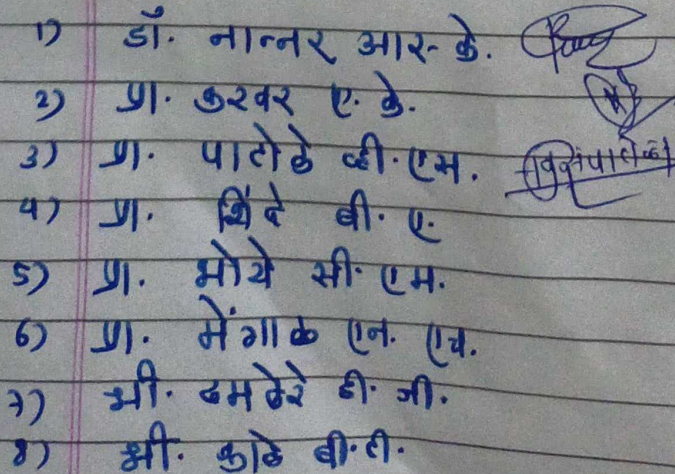 1) डॉ. नान्नर आर. के.
2) प्रा. कुरवर ए. के.
3) प्रा. पाटोळे व्ही. एम.
4) प्रा. शिंदे बी. ए.
5) प्रा. भोये सी. एम.
6) प्रा. मेंगाळ एन. एच.
7) श्री. ढमढेरे डी. जी.
8) श्री. काळे बी. टी.